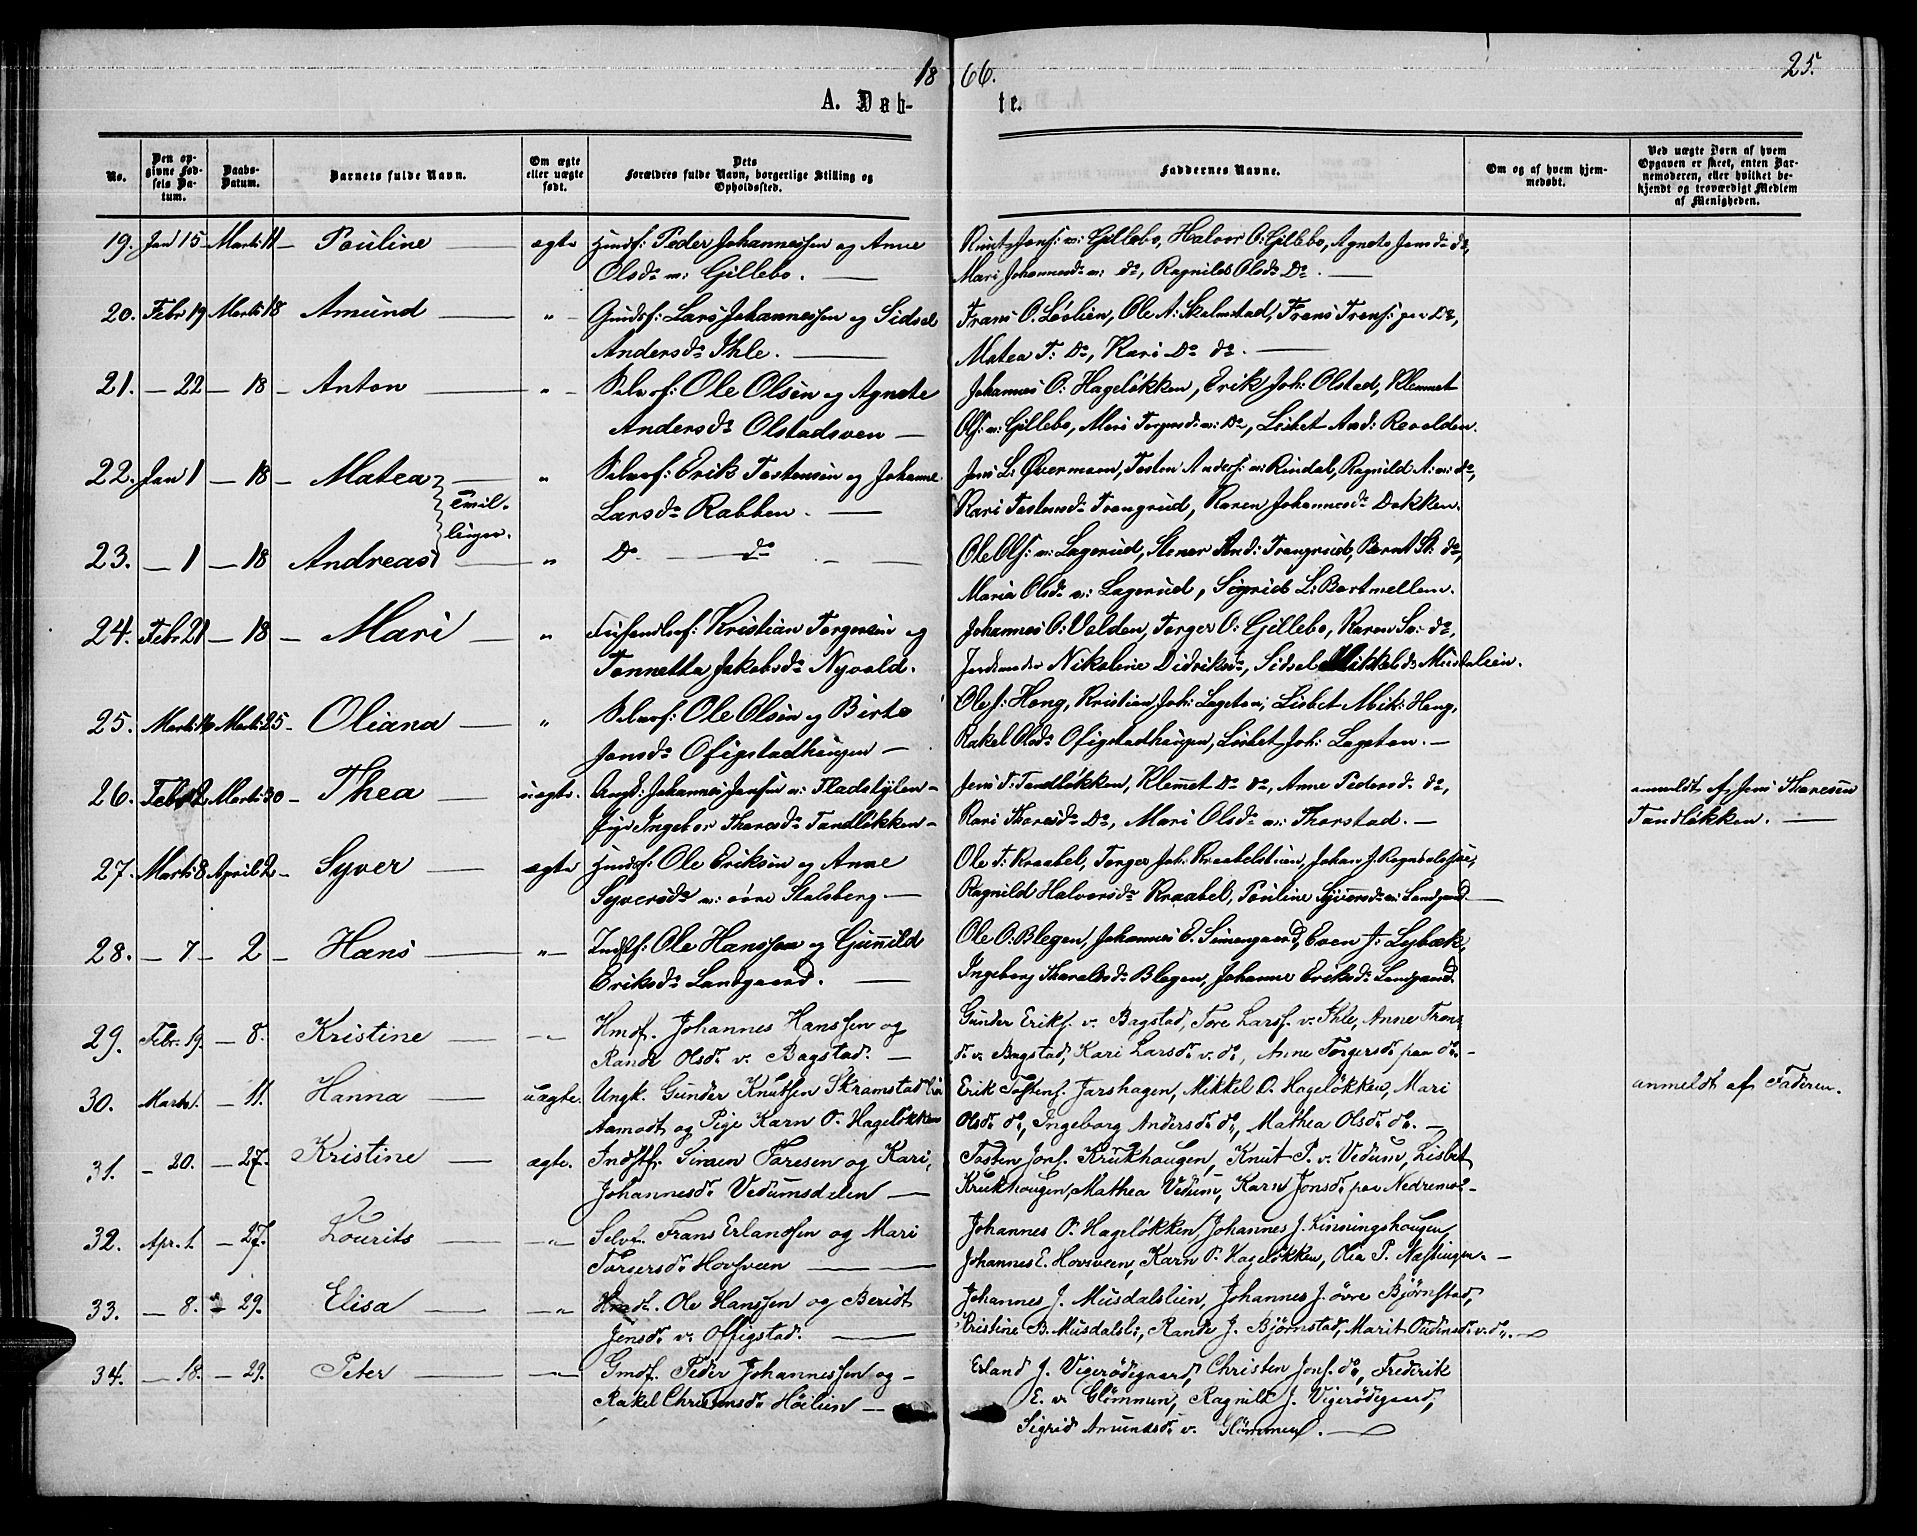 1866.
25.
A. Døbte.
No.
Den opgivne Fødsels Datum.
Daabs-Datum.
Barnets fulde Navn.
Om ægte eller uægte født.
Dets Forældres fulde Navn, borgerlige Stilling og Opholdssted.
Faddernes Navne.
Om og af hvem hjemmedøbt.
Ved uægte Børn af hvem Opgaven er skeet, enten Barnemoderen, eller hvilket bekjendt og troværdigt Medlem af Menigheden.
19. Jan 15 Marts 11 Pauline ægte Huusf: Peder Johannessen og Anne
Olsd: v: Gillebo.
Jons: v: Gillebo, Halvor O: Gillebo, Agnete Jensd: do,
Mari Johannesd: v: do, Ragnild Olsd: Do.
20. Febr 19 Marts 18 Amund " Gmdf: Lars Johannessen og Sidsel
Andersd: Ihle.
Frans O. Løvlien, Ole A: Skalmstad, Frans Frans: Do,
Matea F: Do, Kari Do do.
21. - 22 - 18 Anton " Selvf: Ole Olsen og Agnete
Andersd: Olstadsveen
Johannes O: Hageløkken, Erik Joh: Olstad, Klemmet
Ols: v: Gillebo, Mari Torgersd: v: Do, Lisbet And: Revolden.
22. Jan 1 - 18 Matea " Selvf: Erik Tostensen og Johanne
Larsd: Rabben.
Tvillinger.
Jens L: Øvermoen, Tosten Anders: v: Rindal, Ragnild A: v: do,
Kari Tostensd: Trongrud, Karen Johannesd: Dokken.
23. - 1 - 18 Andreas " Do do
Ole Ols: v: Lagerud, Stener And: Trongrud, Bernt St: do,
Maria Olsd: v: Lagerud, Sigrid L: Bartmellem.
24. Febr 21 - 18 Mari " Kristian Torgersen og
Tonnetta Jakobsd: Nyvold.
Johannes O: Volden, Torger O: Gillebo, Karen Sv: do,
Nikoline Didriksd:, Sidsel Mikkelsd: Musdalslien.
25. Marts 16 Marts 25 Oliana " Selvf: Ole Olsen og Birte
Jonsd: Ofigstadhaugen
Ole J: Haug, Kristian Joh: Lageton, Lisbet Mik: Haug,
Rakel Olsd: Ofigstadhaugen, Lisbet Joh: Lageton.
26. Febr 12 Marts 30 Thea uægte Ungk: Johannes Jensen v: Fladstylen
Pige Ingebor Tharesd: Tandløkken
Jens T: Tandløkken, Klemet Do do, Anne Pedersd: do,
Kari Tharesd: Do, Mari Olsd: v: Thorstad.
anmeldt af Jens Tharesen
Tandløkken.
27. Marts 8 April 2 Syver ægte Huusf: Ole Eriksen og Anne
Syversd: v: øvre Stalsberg
Ole T: Kraabel, Torger Joh: Kraabelstuen, Johan J.
Ragnild Halvorsd: Kraabel, Pauline Syversd: v: Landgaard
28. - 7 - 2 Hans " Indstf: Ole Hanssen og Gunnild
Eriksd: Landgaard.
Ole O: Blegen, Johannes E. Simengaard, Even J: Lybæk,
Ingeborg Tharaldsd: Blegen, Johanne Eriksd: Landgaard.
29. Febr. 19. - 8. Kristine " Hmdf. Johannes Hanssen og
Randi Olsd. v. Bagstad.
Gunder Eriks. v. Bagstad, Tore Larss. v. Ihle, Anne Frans-
d. v. Bagstad, Kari Larsd. v. do., Anne Torgersd. paa do.
30. Marts 1. - 11. Hanna uægte. Ungk. Gunder Knutsen Skramstad
Aamodt og Pige Karn O. Hageløkken
Erik Tostens. Jarshagen, Mikkel O. Hageløkken, Mari
Olsd. do, Ingeborg Andersd. do, Mathea Olsd. do.
anmeldt af Faderen.
31. - 20. - 27. Kristine ægte. Indstf. Simen Toresen og Kari,
Johannesd. Vedumsdelen
Tosten Jons. Krukhougen, Knut P. v. Vedum, Lisbet
Krukhougen, Mathea Vedum, Karn Jonsd. paa Nedremo.
32. Apr. 1. - 27. Lourits " Selvf. Frans Erlandsen og Mari
Torgersd. Hovsveen
Johannes O. Hageløkken, Johannes J. Kinningshougen,
Johannes E. Hovsveen, Karn O. Hageløkken, Olea P.
33. - 8. - 29. Elisa " Ole Hanssen og Beridt
Jensd. v. Offigstad.
Johannes J. Musdalslien, Johannes J. øvre Bjørnstad,
Kristine B. Musdalsli, Randi J. Bjørnstad, Marit Oudensd. v. do.
34. - 18. - 29. Peter " Gmdf. Peder Johannessen og
Rakel Christensd. Höilien
Erland J. Vigerødegaard, Christen Jons. do, Frederik
E. v. Glömmen, Ragnild J. Vigerødegaard,
Sigrid Amundsd. v. Glömmen.